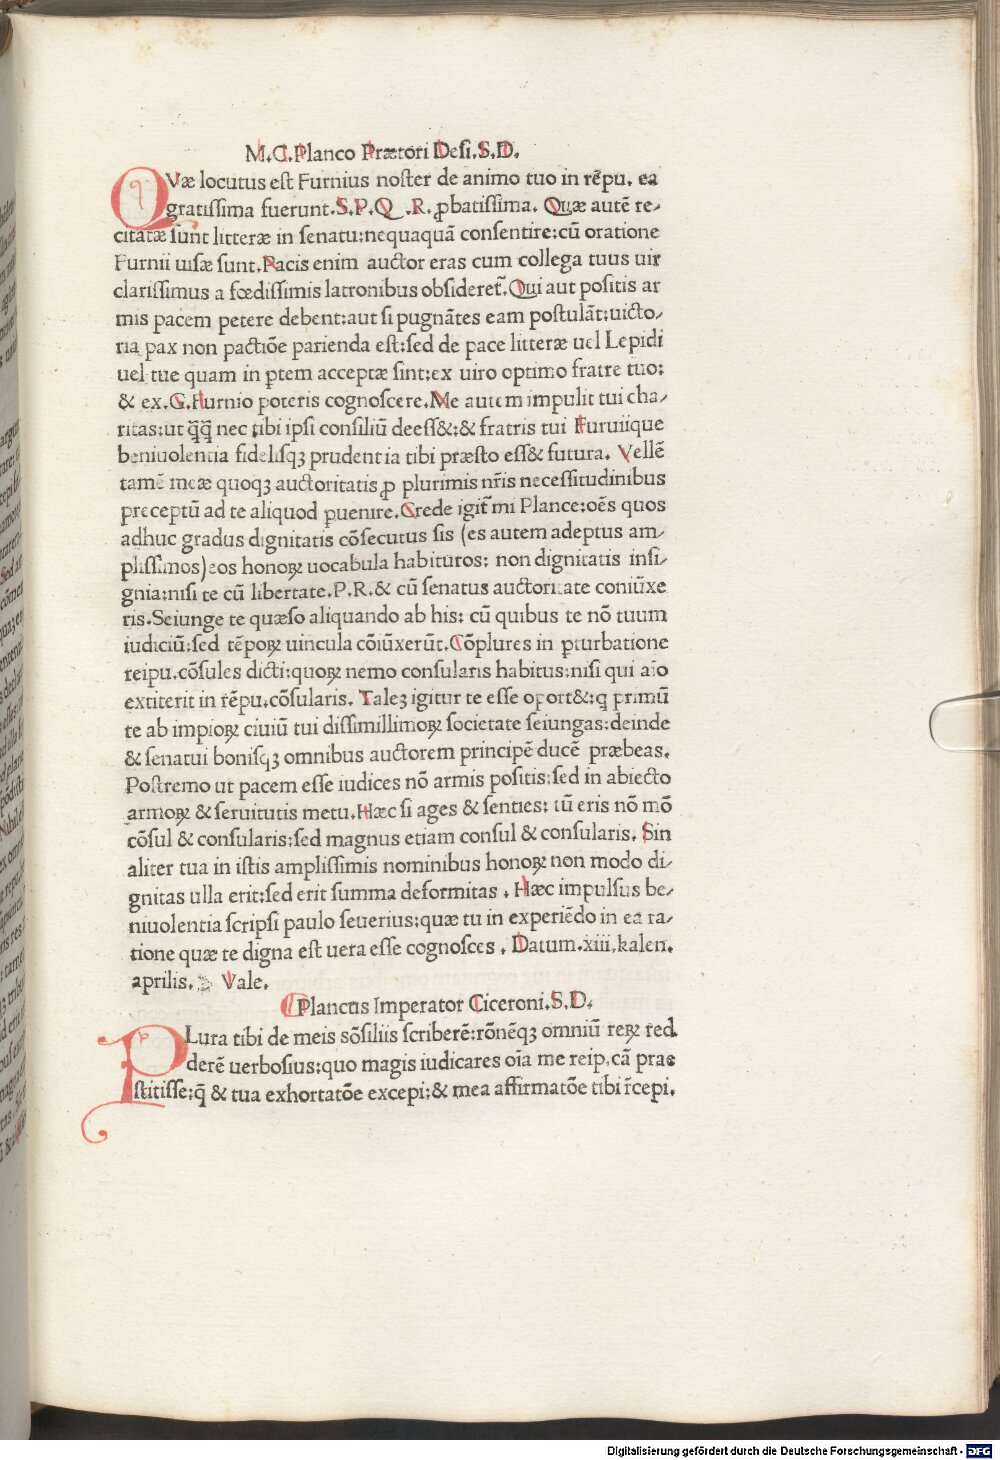 M.C.Planco Prætori Desi.S.D.
QVæ locutus est Furnius noster de animo tuo in rēpu. ea
gratissima fuerunt.S.P.Q.R. ꝓbatissima. Quæ autē re-
citatæ sunt litteræ in senatu:nequaquā consentire:cū oratione
Furnii uisæ sunt.Pacis enim auctor eras cum collega tuus uir
clarissimus a fœdissimis latronibus obsideret̃.Qui aut positis ar
mis pacem petere debent:aut si pugnātes eam postulāt:uicto-
ria pax non pactiōe parienda est:sed de pace litteræ uel Lepidi
uel tue quam in ꝑtem acceptæ sint:ex uiro optimo fratre tuo:
& ex.G.Furnio poteris cognoscere.Me autem impulit tui cha-
ritas:ut q̄q̄ nec tibi ipsi consiliū deess&:& fratris tui Furuiique
beniuolentia fidelisqꝫ prudentia tibi præsto ess& futura. Vellē
tamē meæ quoqꝫ auctoritatis ꝓ plurimis nr̄is necessitudinibus
preceptū ad te aliquod ꝑuenire.Crede igit̃ mi Plance:oēs quos
adhuc gradus dignitatis cōsecutus sis (es autem adeptus am-
plissimos)eos honoꝝ uocabula habituros: non dignitatis insi-
gnia:nisi te cū libertate.P.R.& cū senatus auctoritate coniūxe
ris.Seiunge te quæso aliquando ab his: cū quibus te nō tuum
iudiciū:sed tēpoꝝ uincula cōiūxerūt.Cōplures in ꝑturbatione
reipu.cōsules dicti:quoꝝ nemo consularis habitus:nisi qui aīo
extiterit in rēpu.cōsularis. Taleꝫ igitur te esse oport&:q primū
te ab impioꝝ ciuiū tui dissimillimoꝝ societate seiungas:deinde
& senatui bonisqꝫ omnibus auctorem principē ducē præbeas.
Postremo ut pacem esse iudices nō armis positis:sed in abiecto
armoꝝ & seruitutis metu.Hæc si ages & senties: tū eris nō mō
cōsul & consularis:sed magnus etiam consul & consularis. Sin
aliter tua in istis amplissimis nominibus honoꝝ non modo di-
gnitas ulla erit:sed erit summa deformitas . Hæc impulsus be-
niuolentia scripsi paulo seuerius:quæ tu in experiēdo in ea ra-
tione quæ te digna est uera esse cognosces . Datum.xiii.kalen.
aprilis. Vale.
Plancus Imperator Ciceroni.S.D.
PLura tibi de meis sōsiliis scriberē:rōnēqꝫ omniū reꝝ red
derē uerbosius:quo magis iudicares oīa me reip.cā præ
stitisse:q̄ & tua exhortatōe excepi:& mea affirmatōe tibi r̄cepi.
Digitalisierung gefördert durch die Deutsche Forschungsgemeinschaft - DFG